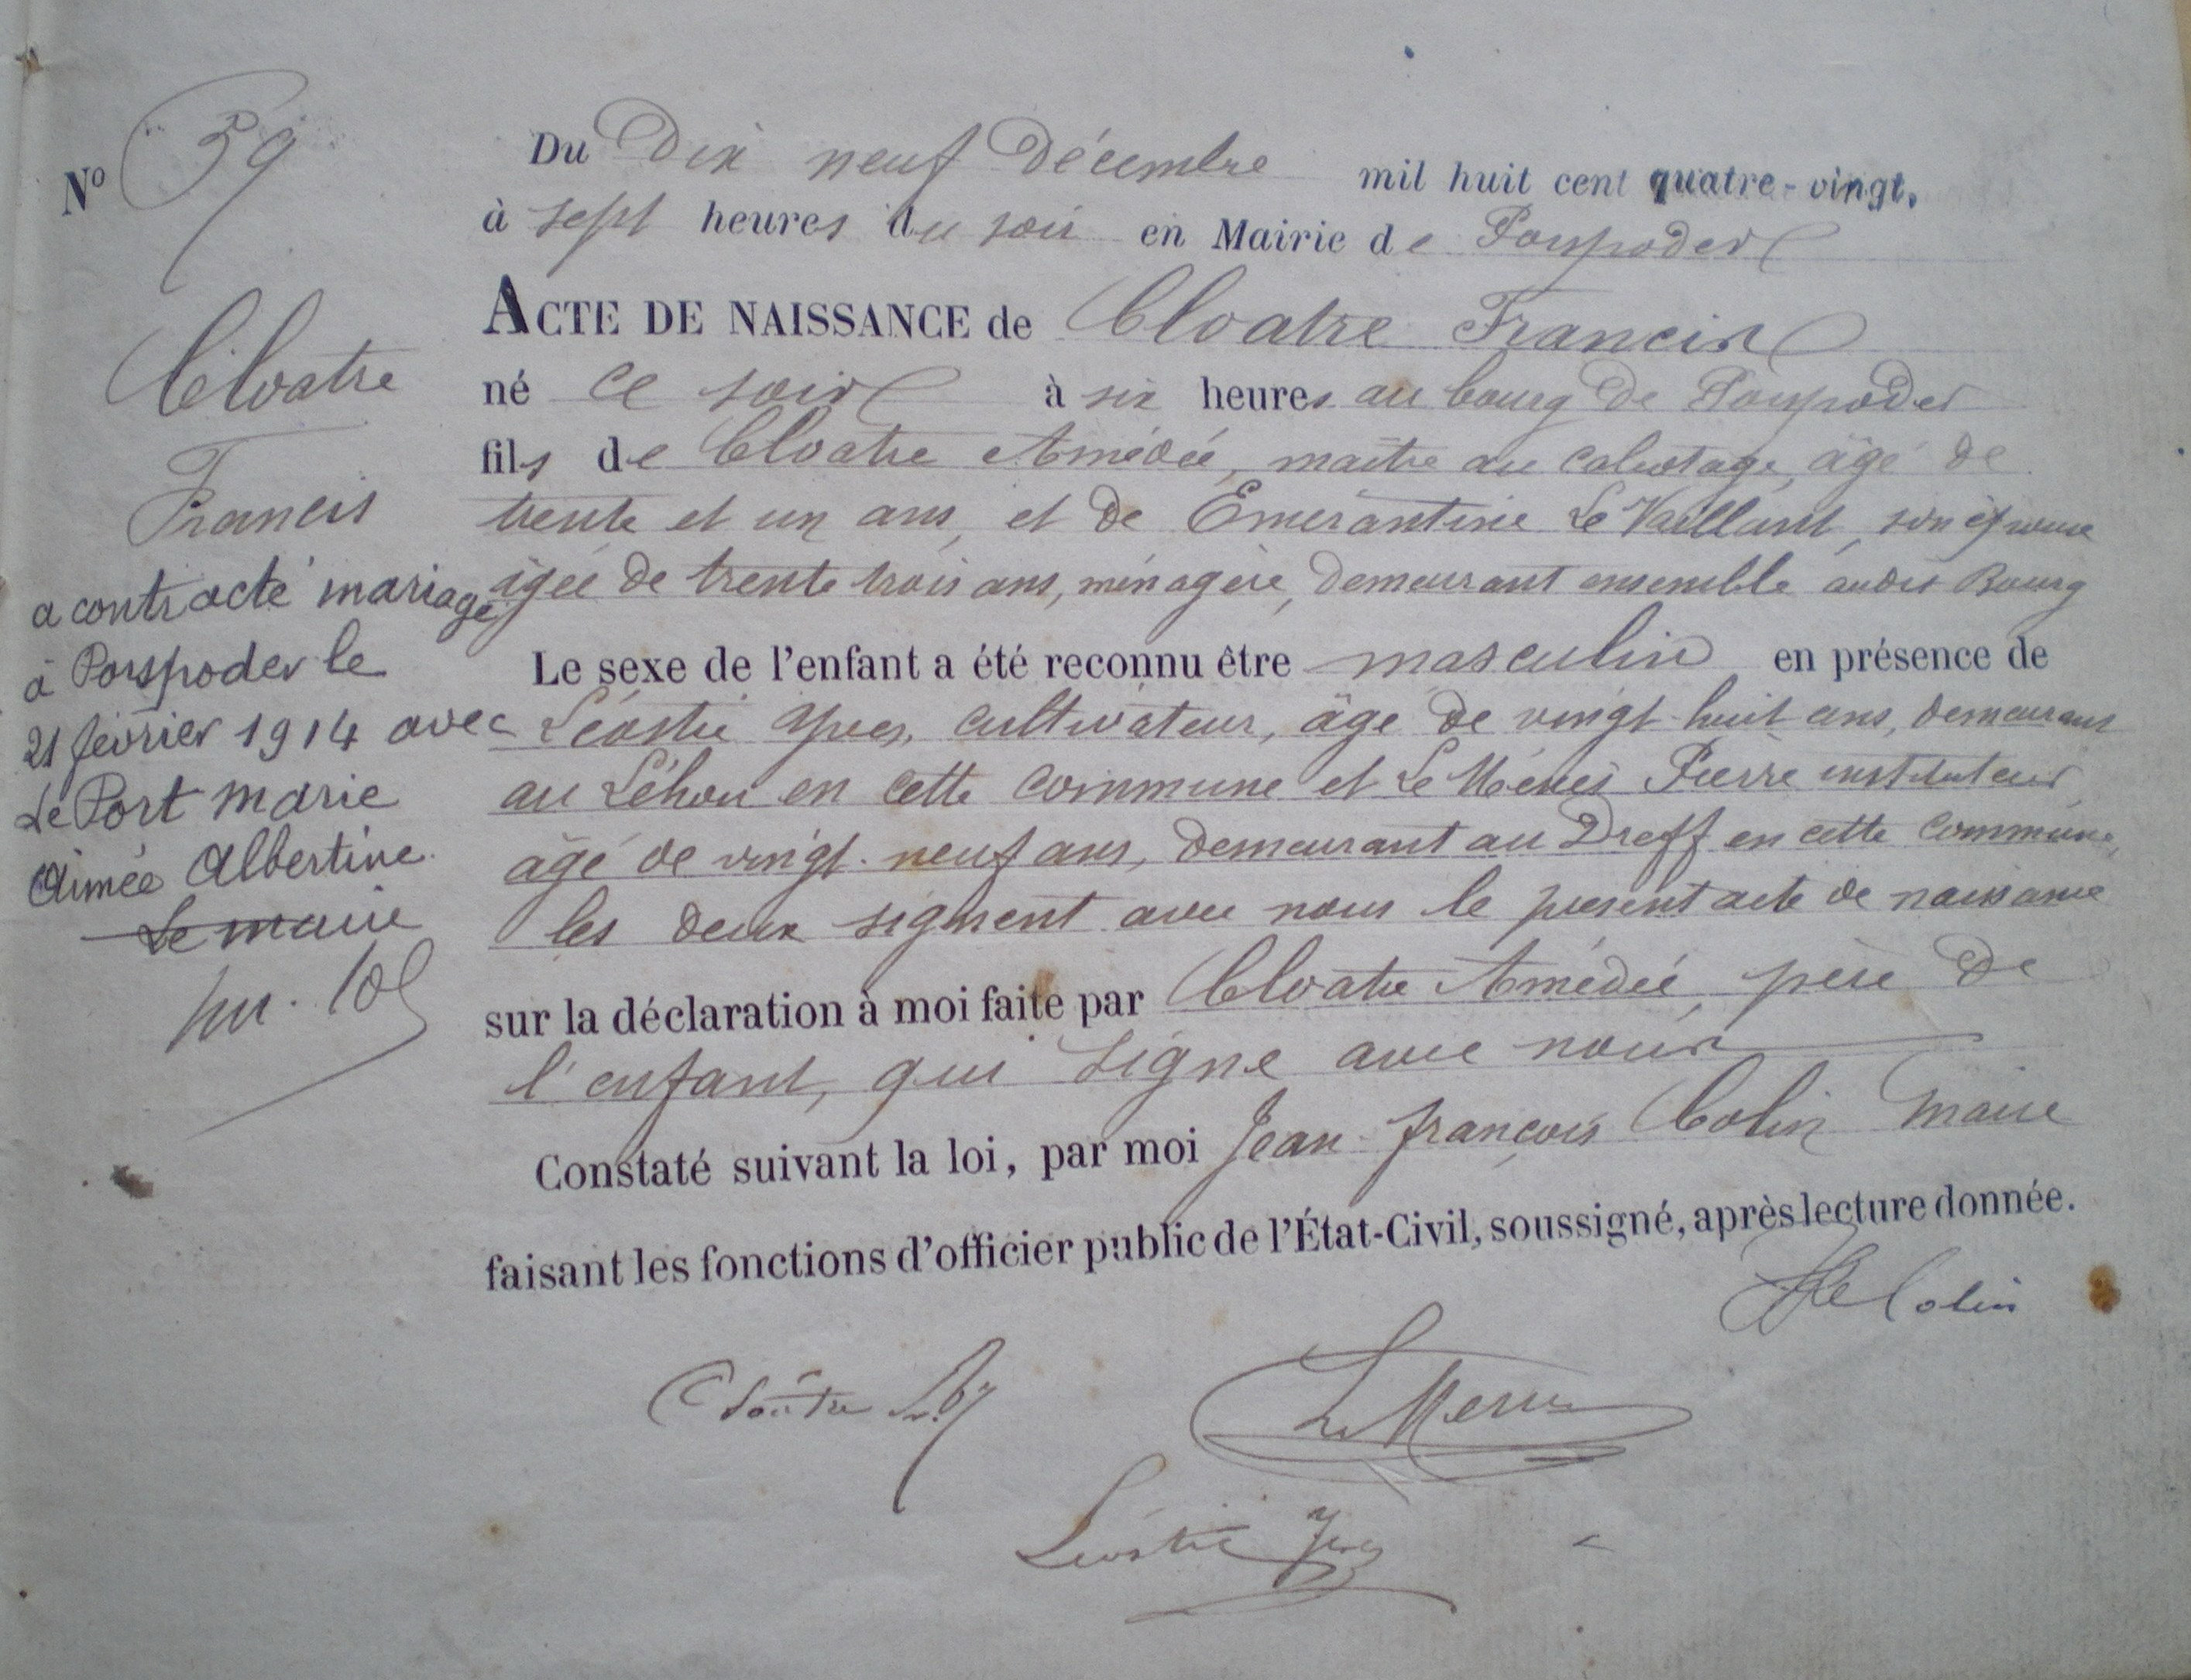 Nº 59
Cloatre
Francis
a contracté mariage
à Porspoder le
21 février 1914 avec
Le Port Marie
Aimée Albertine
Le maire
Du Dix neuf Décembre mil huit cent quatre-vingt.
à sept heures du soir en Mairie de Porspoder
ACTE DE NAISSANCE de Cloatre Francis
né ce soir à six heures au bourg de Porspoder
fils de Cloatre Amédée, maître au cabotage, âgé de
trente et un ans, et de Emérantine Le Vaillant, son épouse
âgée de trente trois ans, ménagère, demeurant ensemble audit Bourg
Le sexe de l'enfant a été reconnu être masculin en présence de
Léostic Yves, cultivateur, âgé de vingt-huit ans, demeurant
au Léhou en cette commune et Le Menes Pierre instituteur,
âgé de vingt-neuf ans, demeurant au Dreff en cette commune,
les deux signent avec nous le présent acte de naissance
sur la déclaration à moi faite par Cloatre Amédée, père de
l'enfant, qui signe avec nous
Constaté suivant la loi, par moi Jean-François Colin Maire
faisant les fonctions d'officier public de l'État-Civil, soussigné, après lecture donnée.
Colin
Cloâtre
Léostic Yves